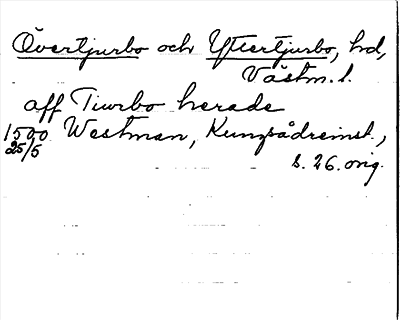 Övertjurbo och Yttertjurbo, hd,
Västm. l.
aff Tiurbo herade
1500 Westman, Kungsådreinst.,
25/5
s. 26. orig.